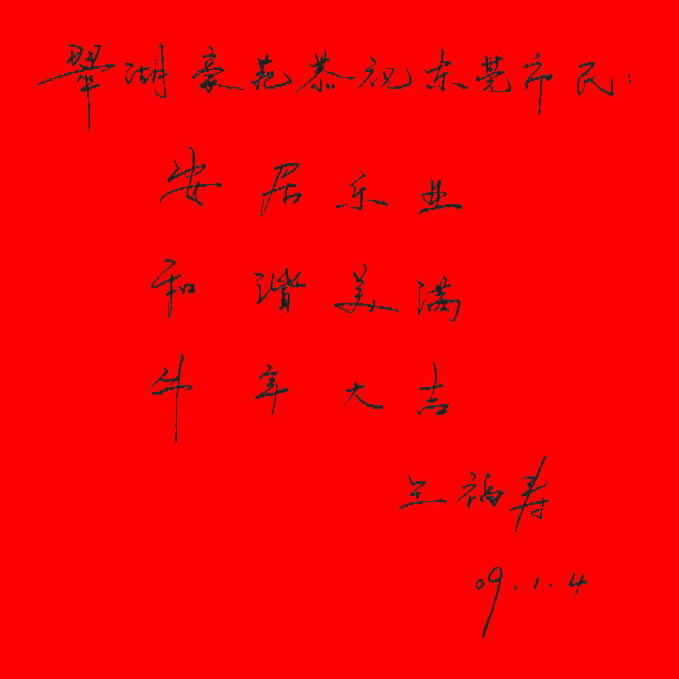 翠湖豪苑恭祝东莞市民:
安居乐业
和谐美满
牛年大吉
王福寿
09.1.4